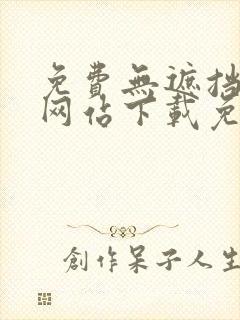 免費無遮挡
网佔下載免
創作呆子人生